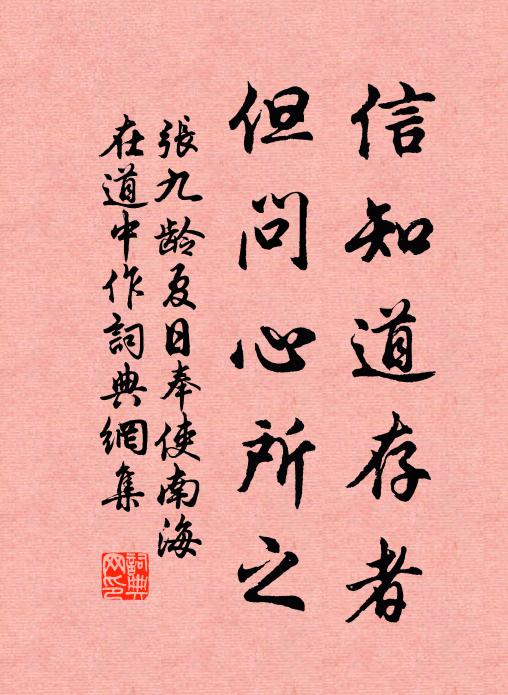 信知道存者
但问心所之
張九龄夏日奉使南海
在道中作詞典網集
詞典
网印